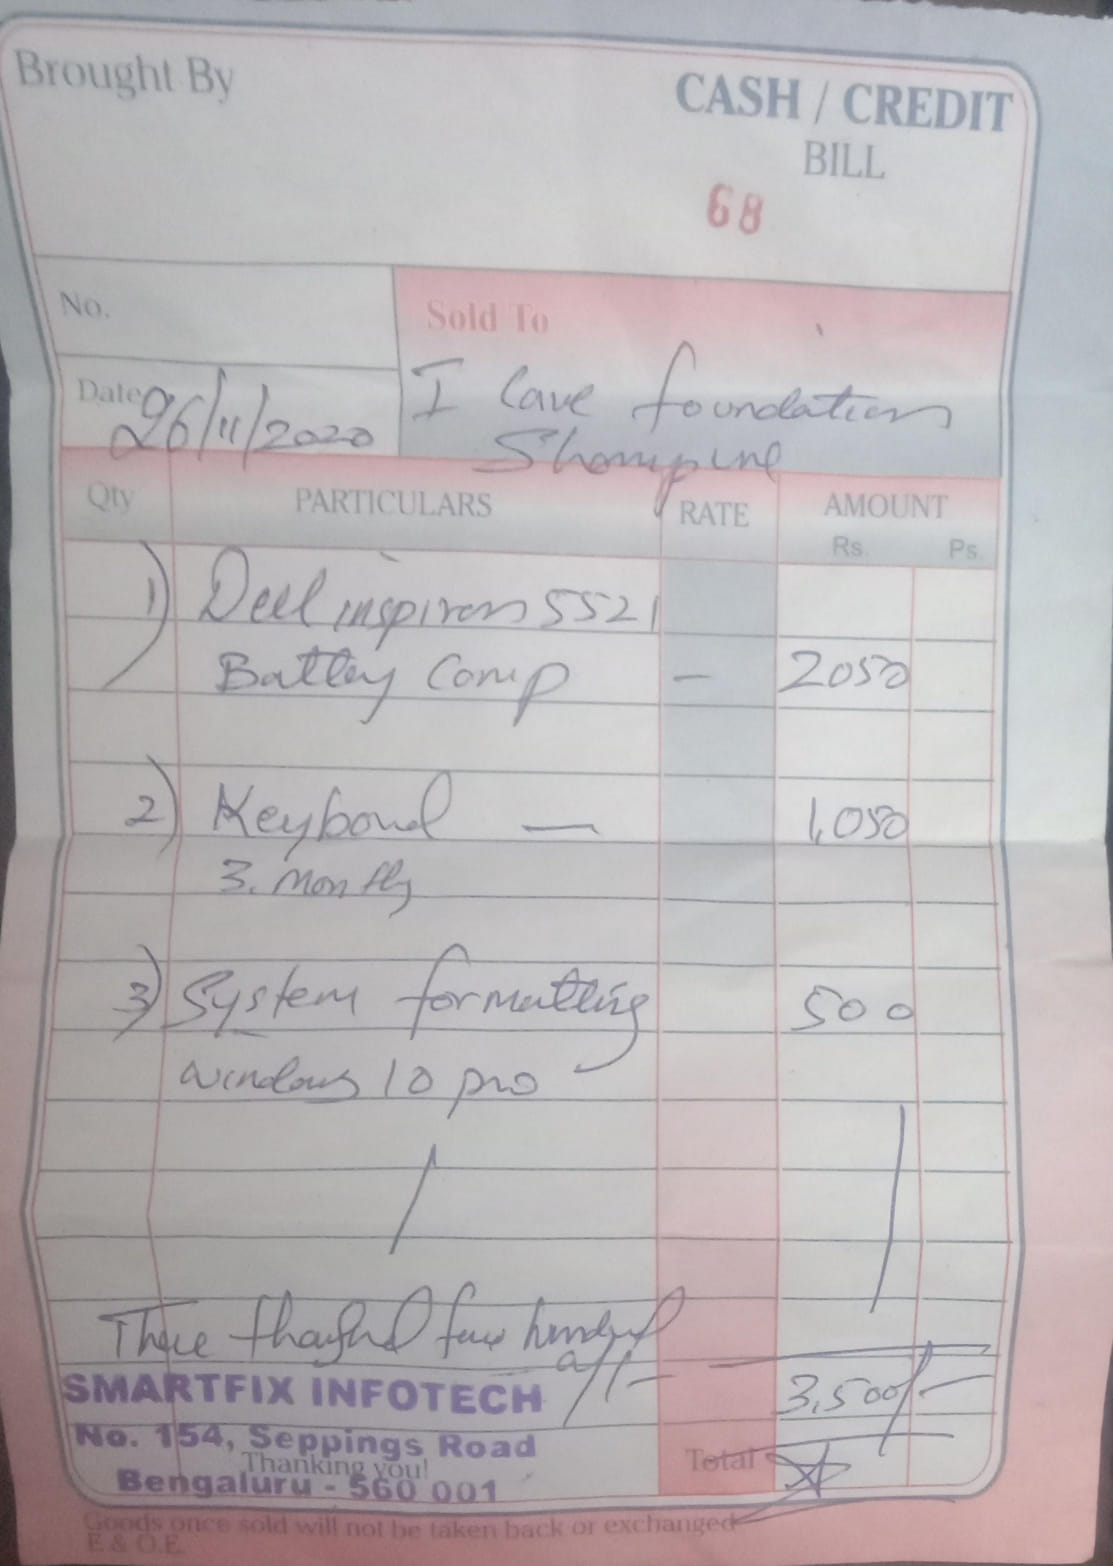 Brought By
CASH / CREDIT
BILL
68
No.
Sold To
Date 26/11/2020
I Care foundation
Qty PARTICULARS RATE AMOUNT
Rs. Ps.
1) Dell inspiron 5521
Battery Comp — 2050
2) Keyboard — 1,050
3. Months
3) System formatting 500
windows 10 pro
Three thousand five hundred
3,500/-
SMARTFIX INFOTECH
No. 154, Seppings Road
Thanking you!
Total
Bengaluru - 560 001
Goods once sold will not be taken back or exchanged
E & O.E.